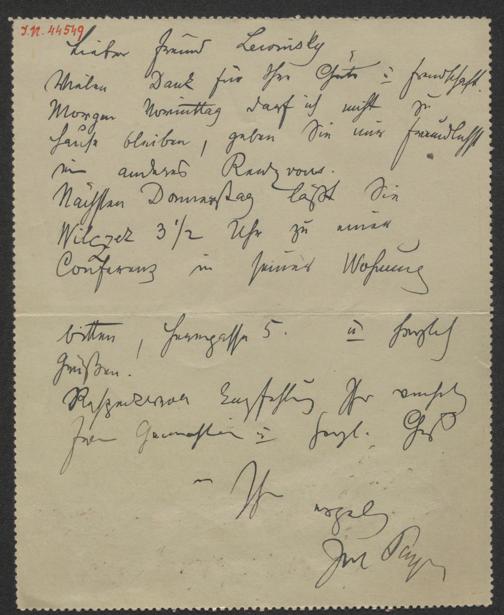 I.N. 44549
Lieber Freund Lewinsky
Vielen Dank für Ihre Güte u Freundschaft.
Morgen Vormittag darf ich nicht zu
Hause bleiben, geben Sie mir freundlichst
ein anderes Rendezvous.
Nächsten Donnerstag läßt Sie
Wilczek 3 1/2 Uhr zu einer
Conferenz in seiner Wohnung
bitten, Herrengasse 5. u herzlich
Grüßen.
Empfehlung Ihr
Frau Gemahlin u herzl. Gruß
Ihr
Payer